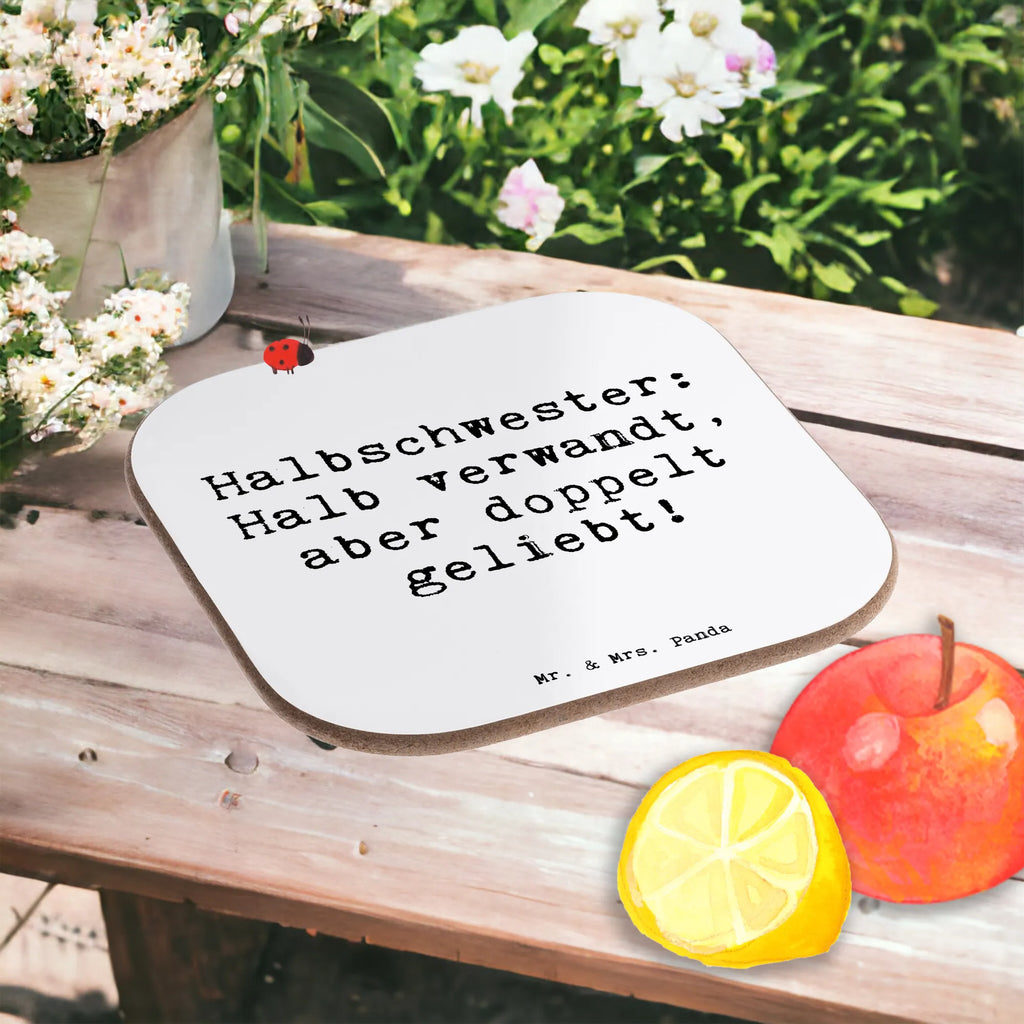 Halbschwester:
Halb verwandt,
aber doppelt
geliebt!
Mr. & Mrs. Panda